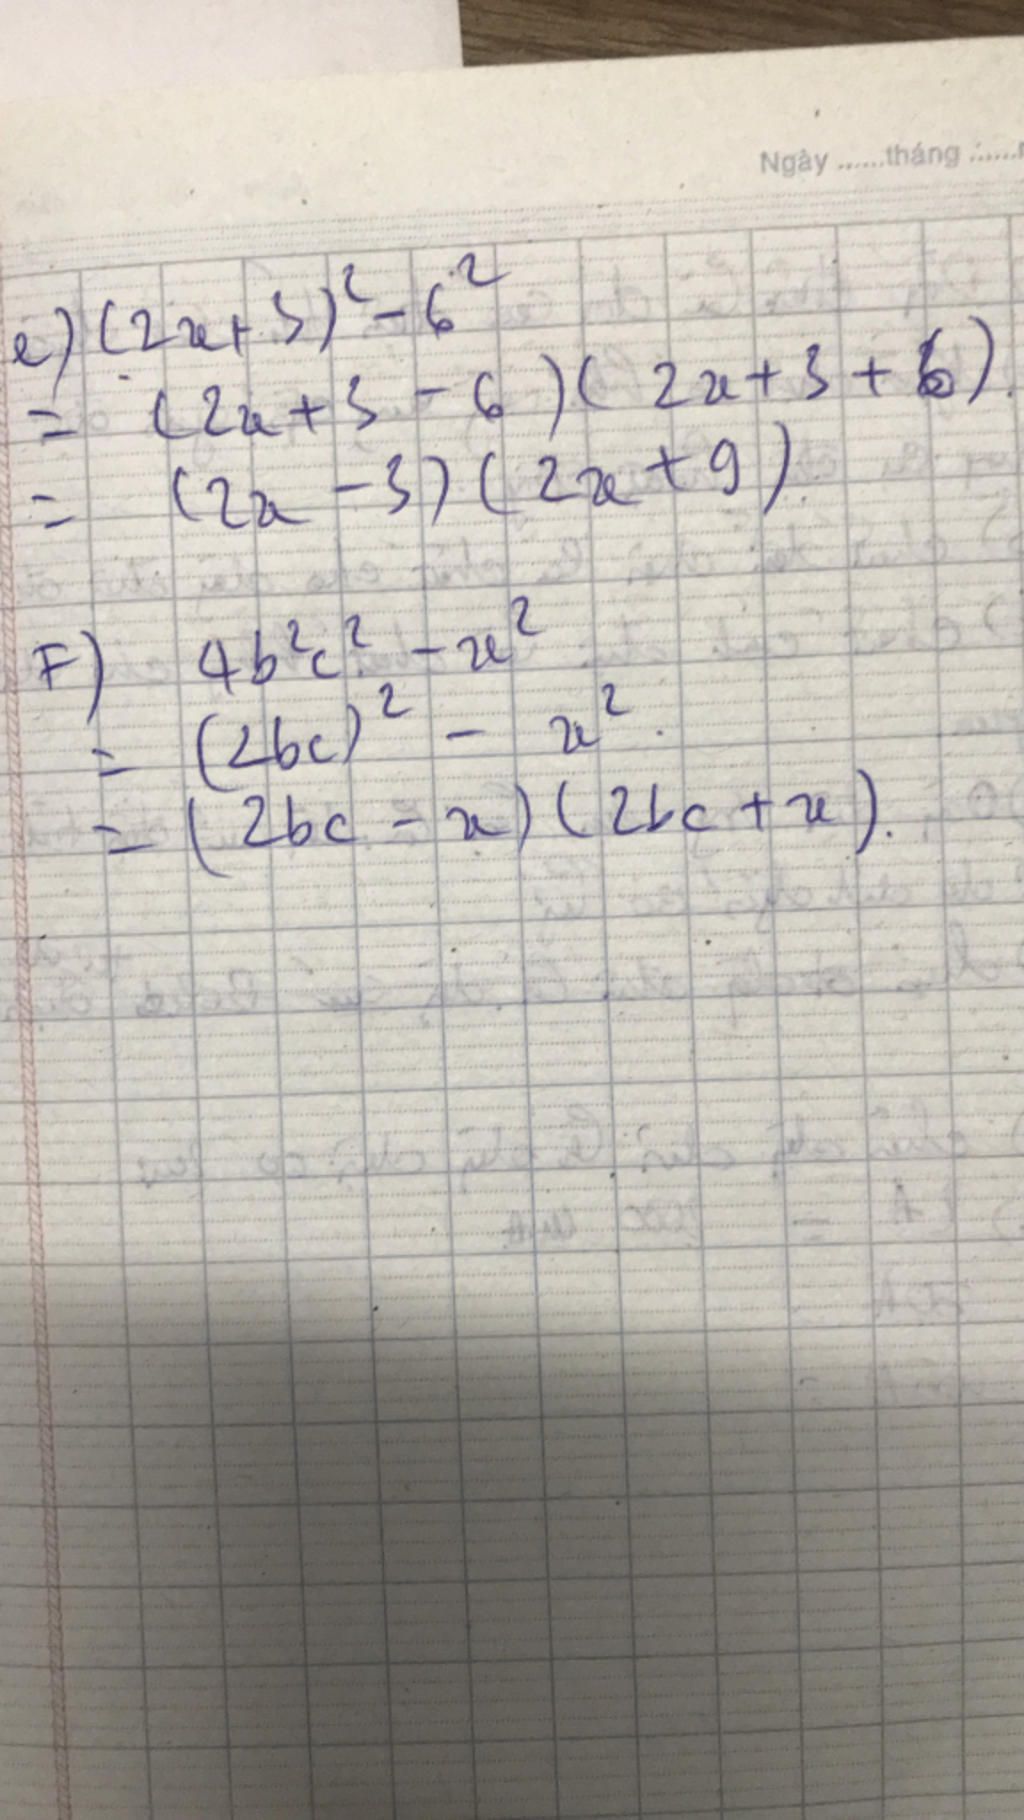 Ngày ......tháng ......
e) (2x+3)² - 6²
= (2x+3 - 6)(2x+3+6).
= (2x - 3)(2x+9)
F) 4b²c² - x²
= (2bc)² - x².
= (2bc - x)(2bc + x).